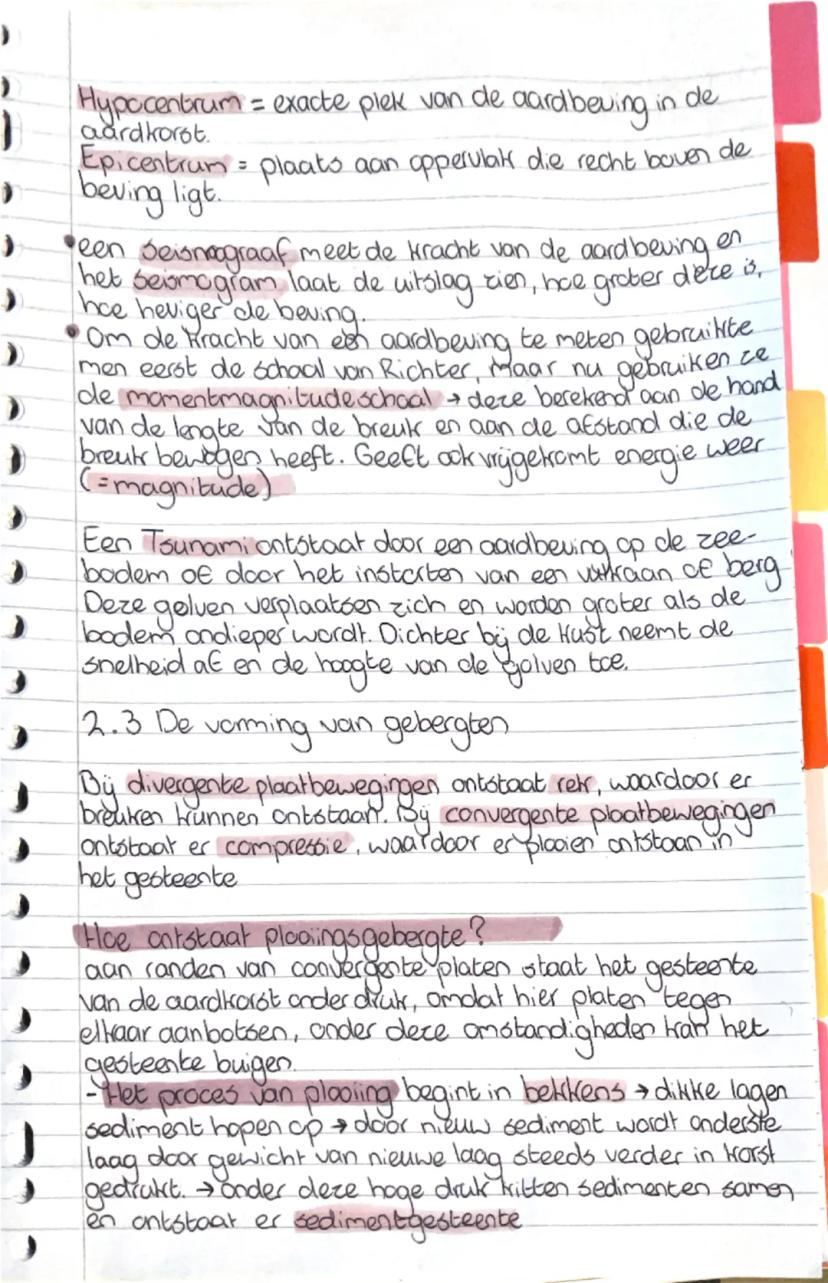 Hypocentrum = exacte plek van de aardbeving in de
aardkorst.
Epicentrum = plaats aan oppervlak die recht boven de
beving ligt.
• een seismograaf meet de kracht van de aardbeving en
het seismogram laat de uitslag zien, hoe groter deze is,
hoe heviger de beving.
• Om de kracht van een aardbeving te meten gebruikte
men eerst de schaal van Richter, Maar nu gebruiken ze
de momentmagnitudeschaal → deze berekend aan de hand
van de lengte van de breuk en aan de afstand die de
breuk bewogen heeft. Geeft ook vrijgekomt energie weer
(=magnitude)
Een Tsunami ontstaat door een aardbeving op de zee-
bodem of door het instorten van een vulkaan of berg
Deze golven verplaatsen zich en worden groter als de
bodem ondieper wordt. Dichter bij de kust neemt de
snelheid af en de hoogte van de golven toe.
2.3 De vorming van gebergten
Bij divergente plaatbewegingen ontstaat rek, waardoor er
breuken kunnen ontstaan. Bij convergente plaatbewegingen
ontstaat er compressie, waardoor er plooien ontstaan in
het gesteente
Hoe ontstaat plooiingsgebergte?
aan randen van convergente platen staat het gesteente
van de aardkorst onder druk, omdat hier platen tegen
elkaar aanbotsen, onder deze omstandigheden kan het
gesteente buigen.
- Het proces van plooiing begint in bekkens → dikke lagen
sediment hopen op → door nieuw sediment wordt onderste
laag door gewicht van nieuwe laag steeds verder in korst
gedrukt. → onder deze hoge druk kitten sedimenten samen
en ontstaat er sedimentgesteente